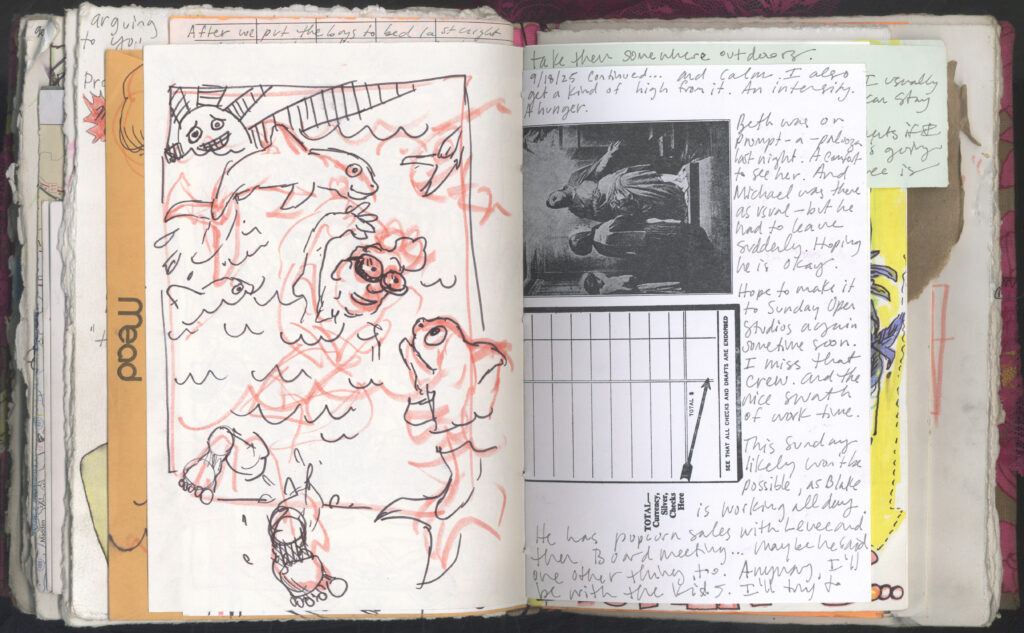 arguing
to you
After we put the boys to bed last night
Mead
take them somewhere outdoors.
9/18/25 continued... and calm. I also
get a kind of high from it. An intensity.
A hunger.
Beth was on
prompt-a-palooza
last night. A comfort
to see her. And
Michael was there
as usual - but he
had to leave
suddenly. Hoping
he is okay.
Hope to make it
to Sunday Open
Studios again
sometime soon.
I miss that
crew. and the
nice swath
of work time.
This Sunday
likely won't be
possible, as Blake
is working all day.
He has popcorn sales with Levee and
then Board meeting... maybe he said
one other thing, too. Anyway, I'll
be with the kids. I'll try to
SEE THAT ALL CHECKS AND DRAFTS ARE ENDORSED
TOTAL $
TOTAL—
Currency,
Silver,
Checks
Here
I usually
can stay
is